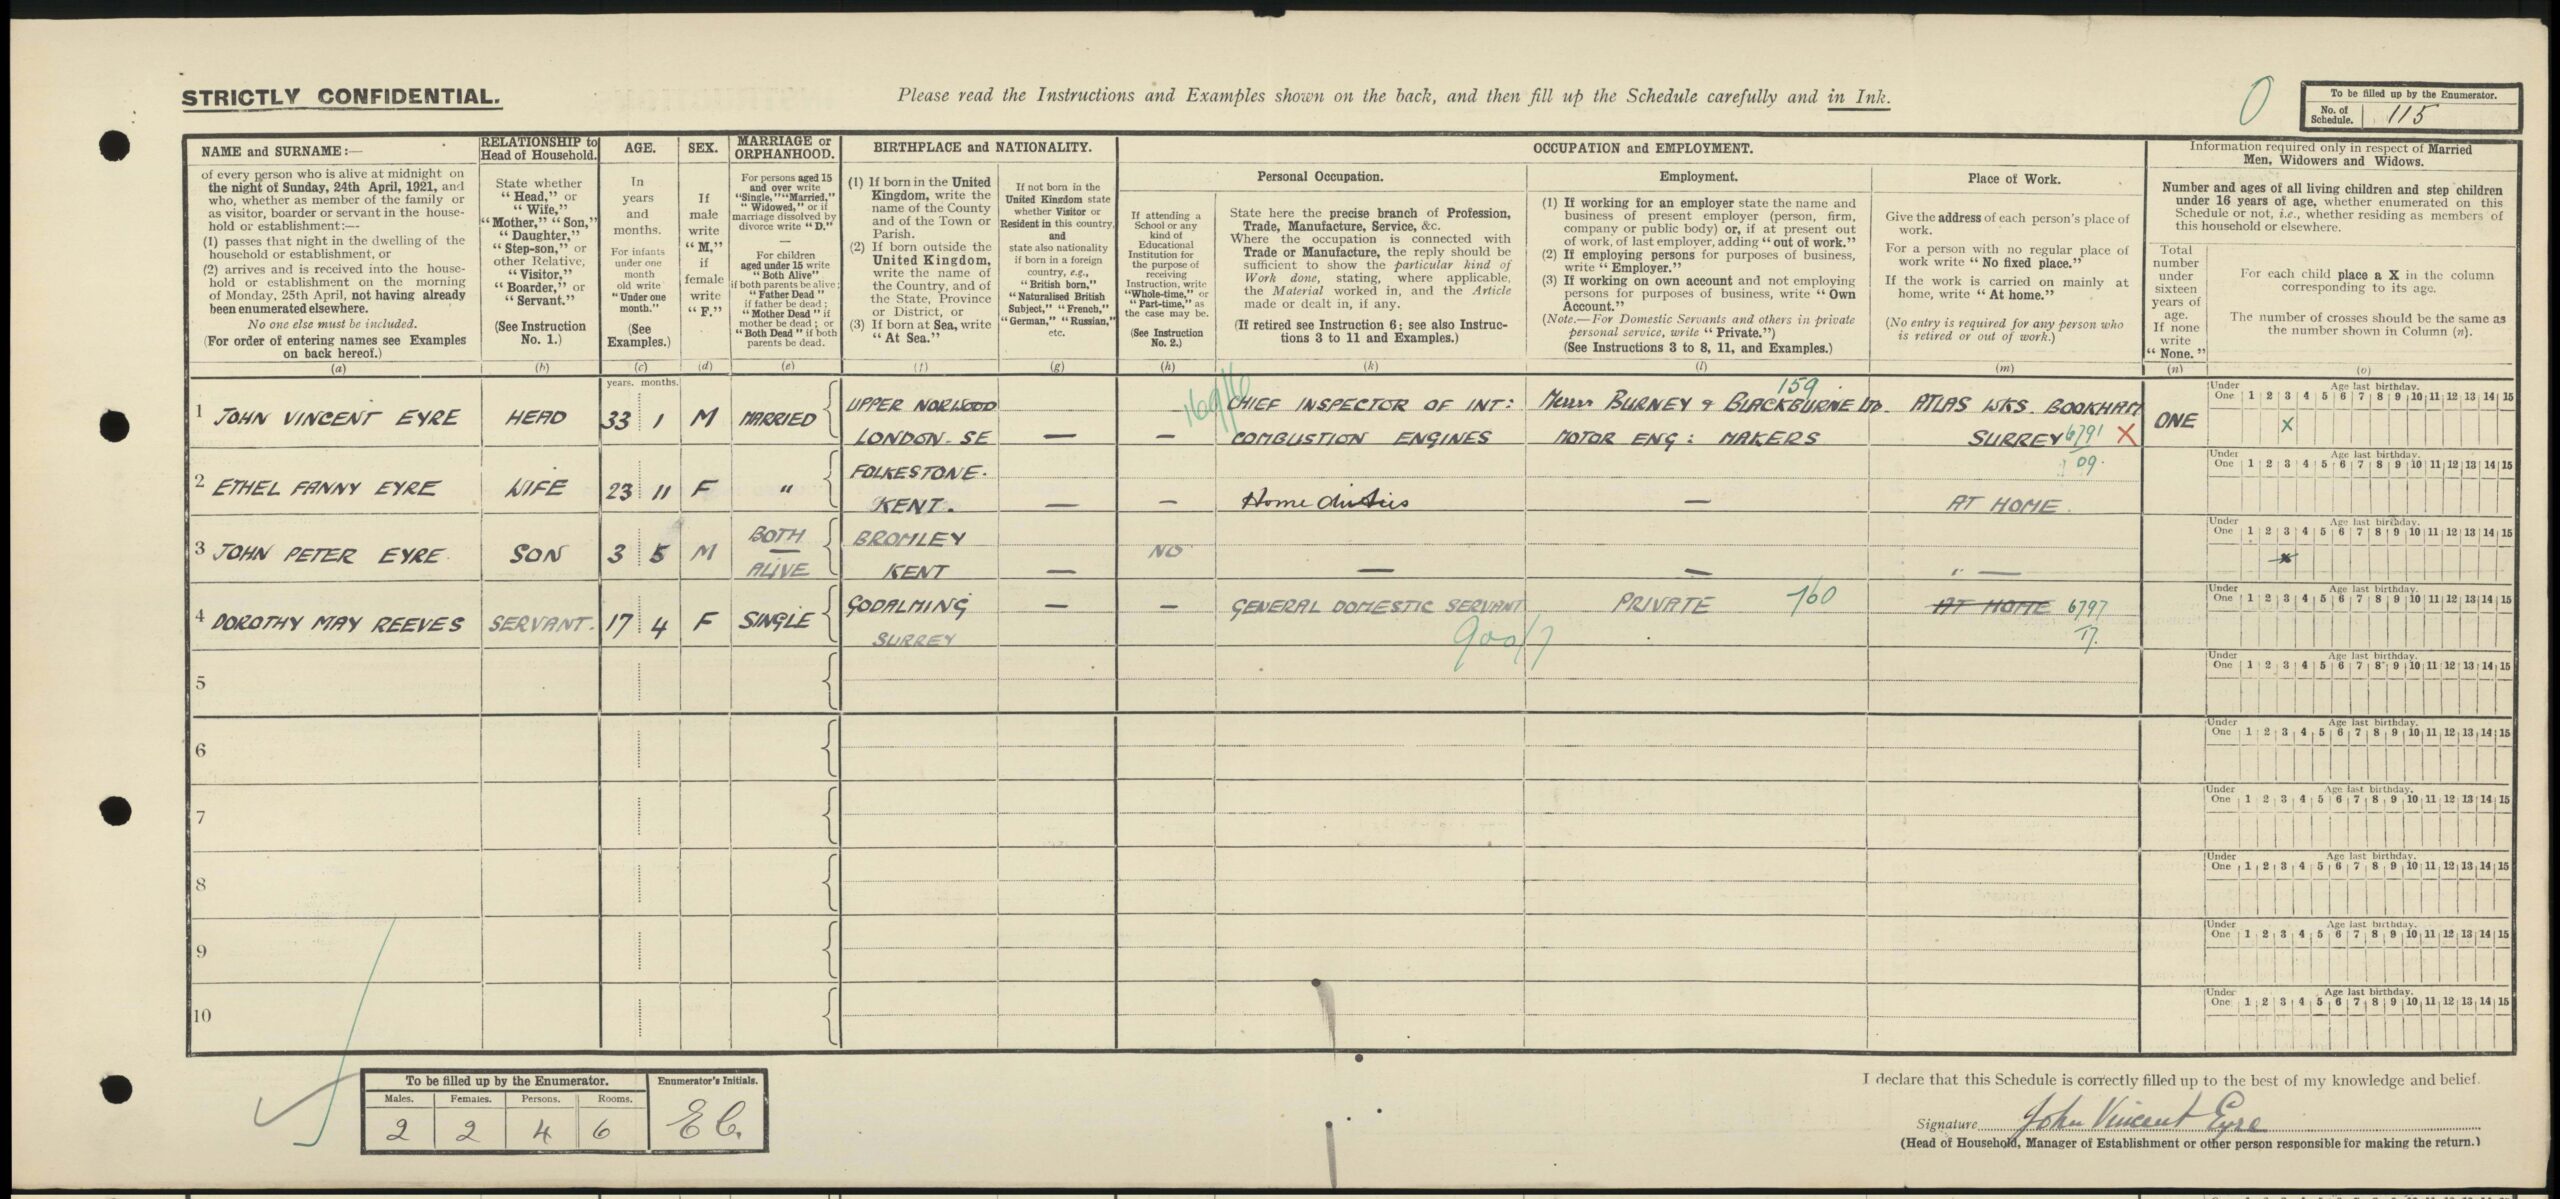 STRICTLY CONFIDENTIAL.
Please read the Instructions and Examples shown on the back, and then fill up the Schedule carefully and in Ink.
0
To be filled up by the Enumerator.
No. of Schedule. 115
NAME and SURNAME:—
of every person who is alive at midnight on
the night of Sunday, 24th April, 1921, and
who, whether as member of the family or
as visitor, boarder or servant in the house-
hold or establishment:—
(1) passes that night in the dwelling of the
household or establishment, or
(2) arrives and is received into the house-
hold or establishment on the morning
of Monday, 25th April, not having already
been enumerated elsewhere.
No one else must be included.
(For order of entering names see Examples
on back hereof.)
(a)
RELATIONSHIP to
Head of Household.
State whether
"Head," or
"Wife,"
"Mother," "Son,"
"Daughter,"
"Step-son," or
other Relative,
"Visitor,"
"Boarder," or
"Servant."
(See Instruction
No. 1.)
(b)
AGE.
In
years
and
months.
For infants
under one
month
old write
"Under one
month."
(See
Examples.)
(c)
SEX.
If
male
write
"M,"
if
female
write
"F."
(d)
MARRIAGE or
ORPHANHOOD.
For persons aged 15
and over write
"Single," "Married,"
"Widowed," or if
marriage dissolved by
divorce write "D."
—
For children
aged under 15 write
"Both Alive"
if both parents be alive;
"Father Dead" if
father be dead;
"Mother Dead" if
mother be dead; or
"Both Dead" if both
parents be dead.
(e)
BIRTHPLACE and NATIONALITY.
(1) If born in the United
Kingdom, write the
name of the County
and of the Town or
Parish.
(2) If born outside the
United Kingdom,
write the name of
the Country, and of
the State, Province
or District, or
(3) If born at Sea, write
"At Sea."
(f)
If not born in the
United Kingdom state
whether Visitor or
Resident in this country,
and
state also nationality
if born in a foreign
country, e.g.,
"British born,"
"Naturalised British
Subject," "French,"
"German," "Russian,"
etc.
(g)
OCCUPATION and EMPLOYMENT.
If attending a
School or any
kind of
Educational
Institution for
the purpose of
receiving
Instruction, write
"Whole-time," or
"Part-time," as
the case may be.
(See Instruction
No. 2.)
(h)
Personal Occupation.
State here the precise branch of Profession,
Trade, Manufacture, Service, &c.
Where the occupation is connected with
Trade or Manufacture, the reply should be
sufficient to show the particular kind of
Work done, stating, where applicable,
the Material worked in, and the Article
made or dealt in, if any.
(If retired see Instruction 6; see also Instruc-
tions 3 to 11 and Examples.)
(k)
Employment.
(1) If working for an employer state the name and
business of present employer (person, firm,
company or public body) or, if at present out
of work, of last employer, adding "out of work."
(2) If employing persons for purposes of business,
write "Employer."
(3) If working on own account and not employing
persons for purposes of business, write "Own
Account."
(Note.—For Domestic Servants and others in private
personal service, write "Private.")
(See Instructions 3 to 8, 11, and Examples.)
(l)
Place of Work.
Give the address of each person's place of
work.
For a person with no regular place of
work write "No fixed place."
If the work is carried on mainly at
home, write "At home."
(No entry is required for any person who
is retired or out of work.)
(m)
Information required only in respect of Married
Men, Widowers and Widows.
Number and ages of all living children and step children
under 16 years of age, whether enumerated on this
Schedule or not, i.e., whether residing as members of
this household or elsewhere.
Total
number
under
sixteen
years of
age.
If none
write
"None."
(n)
For each child place a X in the column
corresponding to its age.
The number of crosses should be the same as
the number shown in Column (n).
(o)
years. months.
169/6 159
1 JOHN VINCENT EYRE HEAD 33 1 M MARRIED UPPER NORWOOD — CHIEF INSPECTOR OF INT: Messrs BURNEY & BLACKBURNE LTD. ATLAS WKS. BOOKHAM ONE
LONDON. SE — — COMBUSTION ENGINES MOTOR ENG: MAKERS SURREY 6791 X
09.
Under One 1 2 3 4 5 6 7 8 9 10 11 12 13 14 15 Age last birthday.
X
2 ETHEL FANNY EYRE WIFE 23 11 F " FOLKESTONE.
KENT. — — Home duties — AT HOME.
Under One 1 2 3 4 5 6 7 8 9 10 11 12 13 14 15 Age last birthday.
3 JOHN PETER EYRE. SON 3 5 M BOTH BROMLEY NO
ALIVE KENT — — — " —
Under One 1 2 3 4 5 6 7 8 9 10 11 12 13 14 15 Age last birthday.
x
4 DOROTHY MAY REEVES SERVANT. 17 4 F SINGLE GODALMING — — GENERAL DOMESTIC SERVANT PRIVATE 760 AT HOME 6797
SURREY 900/7 17.
Under One 1 2 3 4 5 6 7 8 9 10 11 12 13 14 15 Age last birthday.
5
Under One 1 2 3 4 5 6 7 8 9 10 11 12 13 14 15 Age last birthday.
6
Under One 1 2 3 4 5 6 7 8 9 10 11 12 13 14 15 Age last birthday.
7
Under One 1 2 3 4 5 6 7 8 9 10 11 12 13 14 15 Age last birthday.
8
Under One 1 2 3 4 5 6 7 8 9 10 11 12 13 14 15 Age last birthday.
9
Under One 1 2 3 4 5 6 7 8 9 10 11 12 13 14 15 Age last birthday.
10
Under One 1 2 3 4 5 6 7 8 9 10 11 12 13 14 15 Age last birthday.
To be filled up by the Enumerator.
Males. Females. Persons. Rooms.
2 2 4 6
Enumerator's Initials.
E C.
I declare that this Schedule is correctly filled up to the best of my knowledge and belief.
Signature John Vincent Eyre
(Head of Household, Manager of Establishment or other person responsible for making the return.)